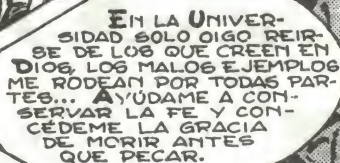 EN LA UNIVER-
SIDAD SOLO OIGO REIR-
SE DE LOS QUE CREEN EN
DIOS, LOS MALOS EJEMPLOS
ME RODEAN POR TODAS PAR-
TES... AYÚDAME A CON-
SERVAR LA FE Y CON-
CÉDEME LA GRACIA
DE MORIR ANTES
QUE PECAR.